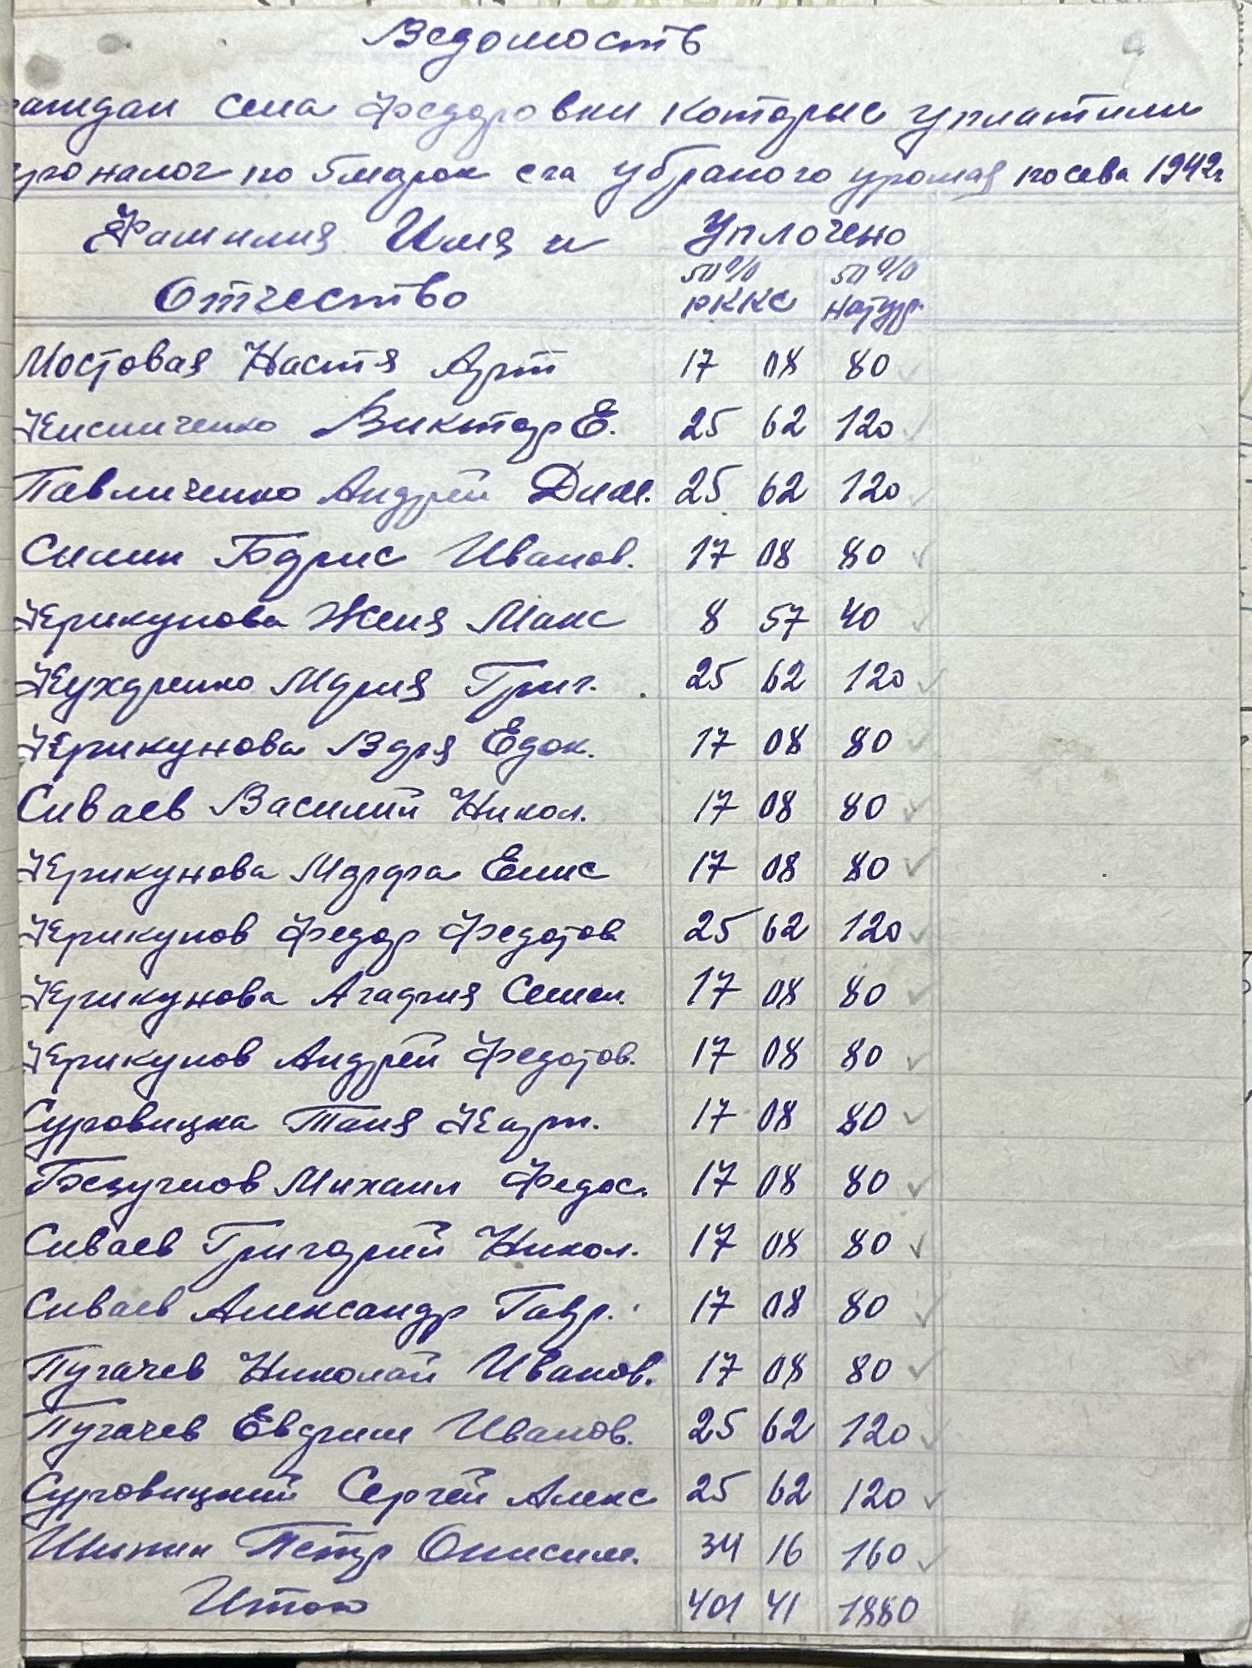 Ведомость
9
аждан села Федоровки которые уплатили
гроналог по 5 марок с га убраного урожая посева 1942г
Фамилия Имя и Уплочено
Отчество 50% РККС 50% натур.
Мостовая Настя Арт 17 08 80
Кисличенко Виктор Е. 25 62 120
Павличенко Андрей Дим. 25 62 120
Силин Борис Иванов. 17 08 80
Крикунова Женя Макс 8 57 40
Кухаренко Мария Григ. 25 62 120
Крикунова Варя Едок. 17 08 80
Сиваев Василий Никол. 17 08 80
Крикунова Марфа Елис 17 08 80
Крикунов Федор Федотов 25 62 120
Крикунова Агафия Семен. 17 08 80
Крикунов Андрей Федотов. 17 08 80
Суровицка Таня Карп. 17 08 80
Безуглов Михаил Федос. 17 08 80
Сиваев Григорий Никол. 17 08 80
Сиваев Александр Гавр. 17 08 80
Пугачев Николай Иванов. 17 08 80
Пугачев Евдоким Иванов. 25 62 120
Суровицкий Сергей Алекс 25 62 120
Шипин Петр Онисим. 34 16 160
Итого 401 41 1880